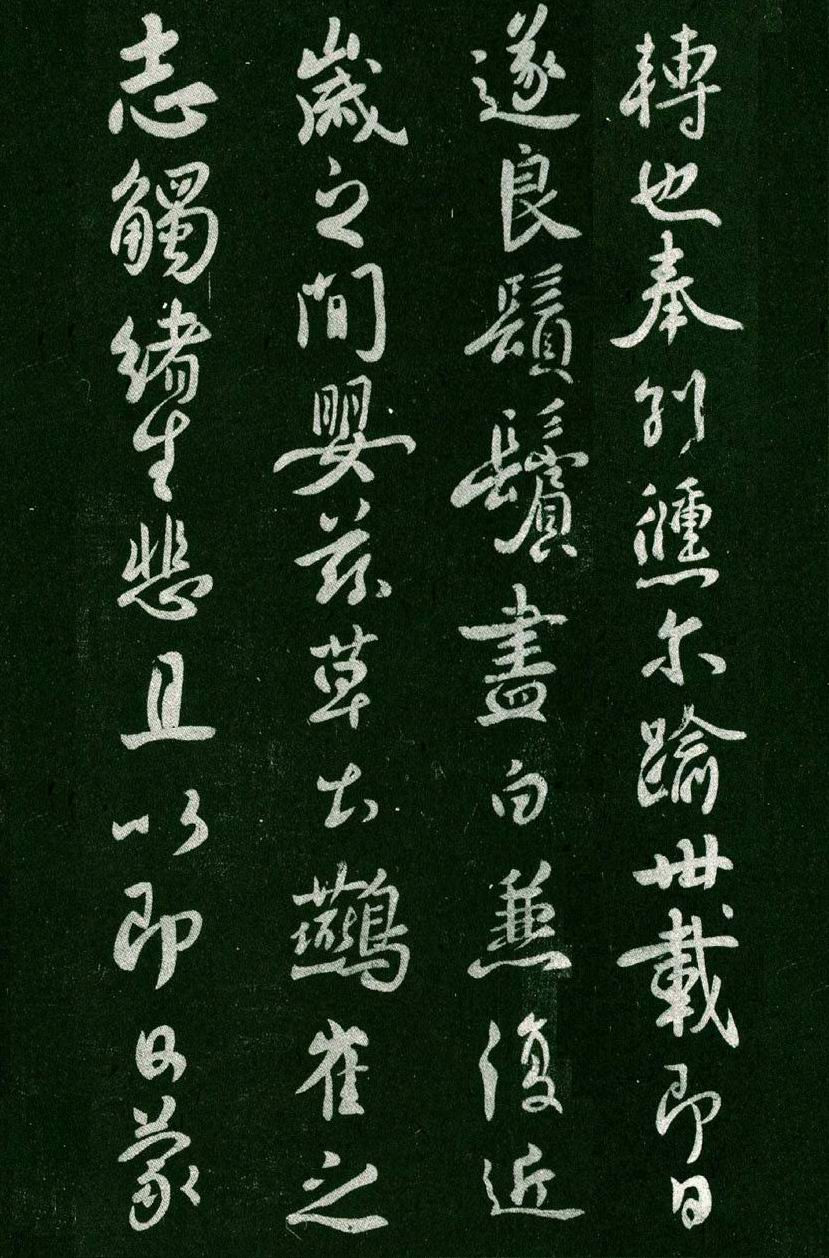 轉也奉別儵尔踰卅載即日
遂良鬚鬢盡白兼復近
歲之間嬰茲草土鷰雀之
志觸緒生悲且以即日蒙